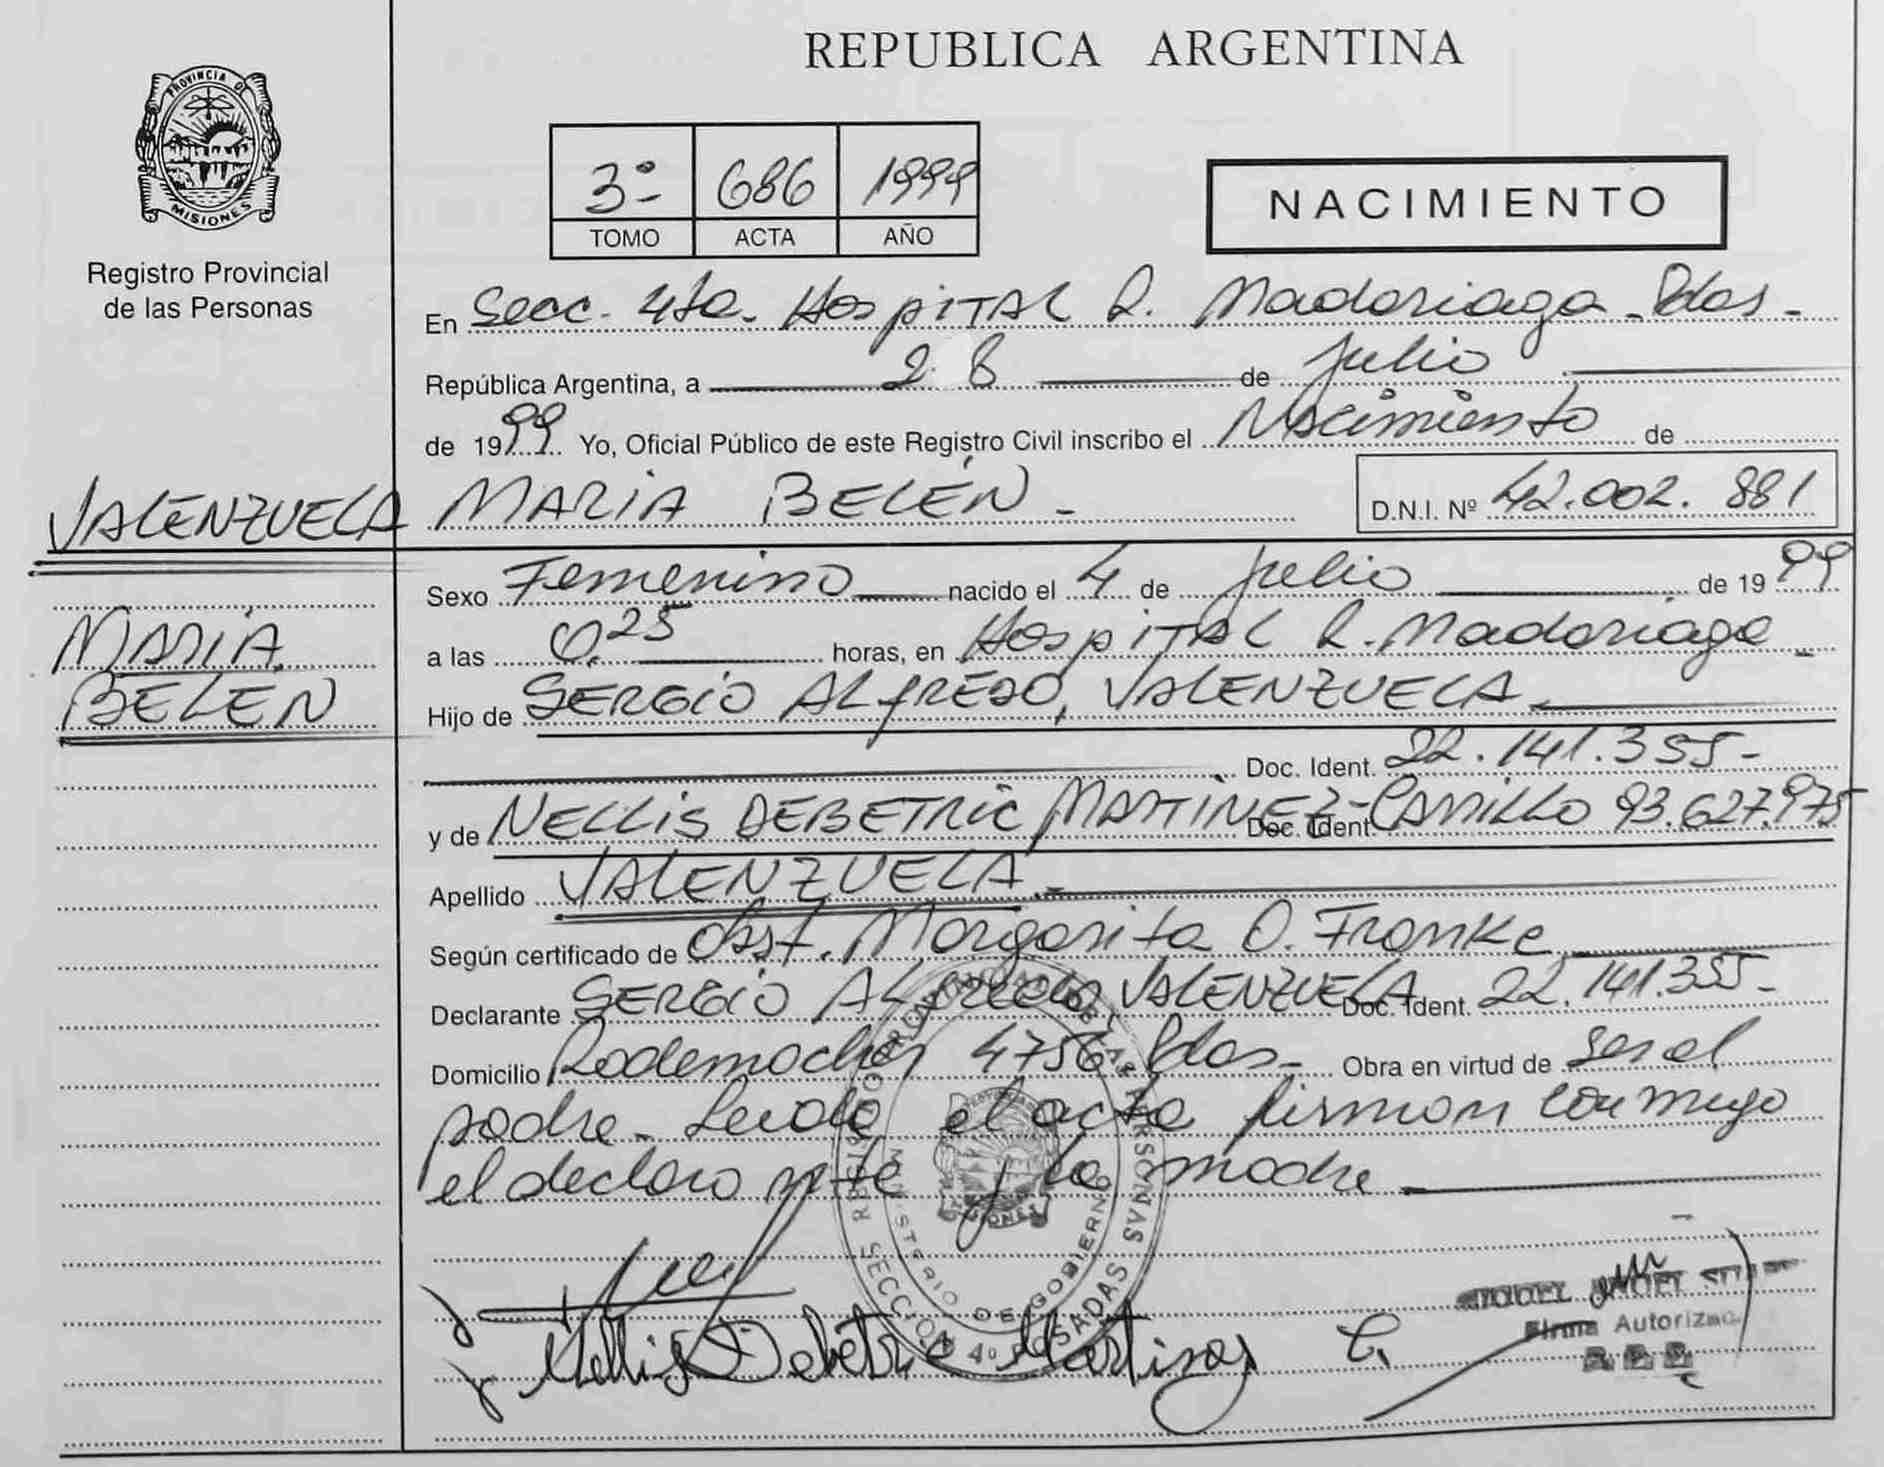 REPUBLICA ARGENTINA
PROVINCIA DE
MISIONES
Registro Provincial
de las Personas
3º 686 1999
TOMO ACTA AÑO
NACIMIENTO
En Secc. 4ta. HospITAL R. Madariaga - Pdas -
República Argentina, a 28 de julio
de 1999 Yo, Oficial Público de este Registro Civil inscribo el Nacimiento de
VALENZUELA MARIA BELÉN - D.N.I. Nº 42.002.881
MARIA
BELEN
Sexo Femenino nacido el 4 de julio de 1999
a las 0,25 horas, en HospITAL R. Madariaga -
Hijo de SERGIO ALFREDO, VALENZUELA
Doc. Ident. 22.141.355-
y de NELLIS DEBETRIC MARTINEZ-CARRILLO Doc. Ident 93.627.975
Apellido VALENZUELA.-
Según certificado de Obst. Margarita O. Franke
Declarante SERGIO ALFREDO VALENZUELA Doc. Ident. 22.141.355-
Domicilio 4756 Pdas- Obra en virtud de ser el
padre - Leída el acta firman conmigo
el declarante y la madre
Nellis Debetric Martinez C.
Firma Autorizad
REGISTRO PROVINCIAL DE LAS PERSONAS
SECCION 4º POSADAS
MINISTERIO DE GOBIERNO
MISIONES